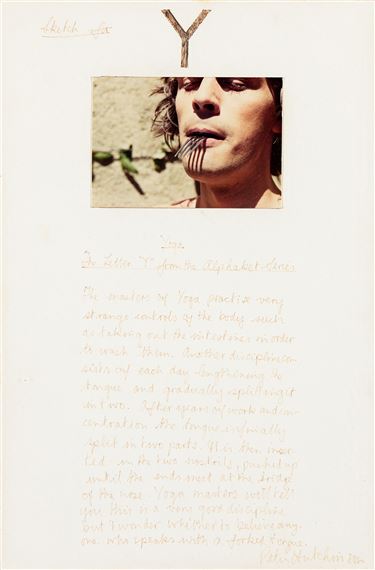 Sketch for
Y
Yoga
For Letter "Y" from the Alphabet Series
The masters of Yoga practise very
strange controls of the body such
as taking out the intestines in order
to wash them. Another discipline con-
sists of each day lengthening the
tongue and gradually splitting it
in two. After years of work and con-
centration the tongue is finally
split in two parts. It is then inser-
ted in the two nostrils, pushed up
until the ends meet at the bridge
of the nose. Yoga masters will tell
you this is a very good discipline
but I wonder whether to believe any-
one who speaks with a forked tongue.
Peter Hutchinson